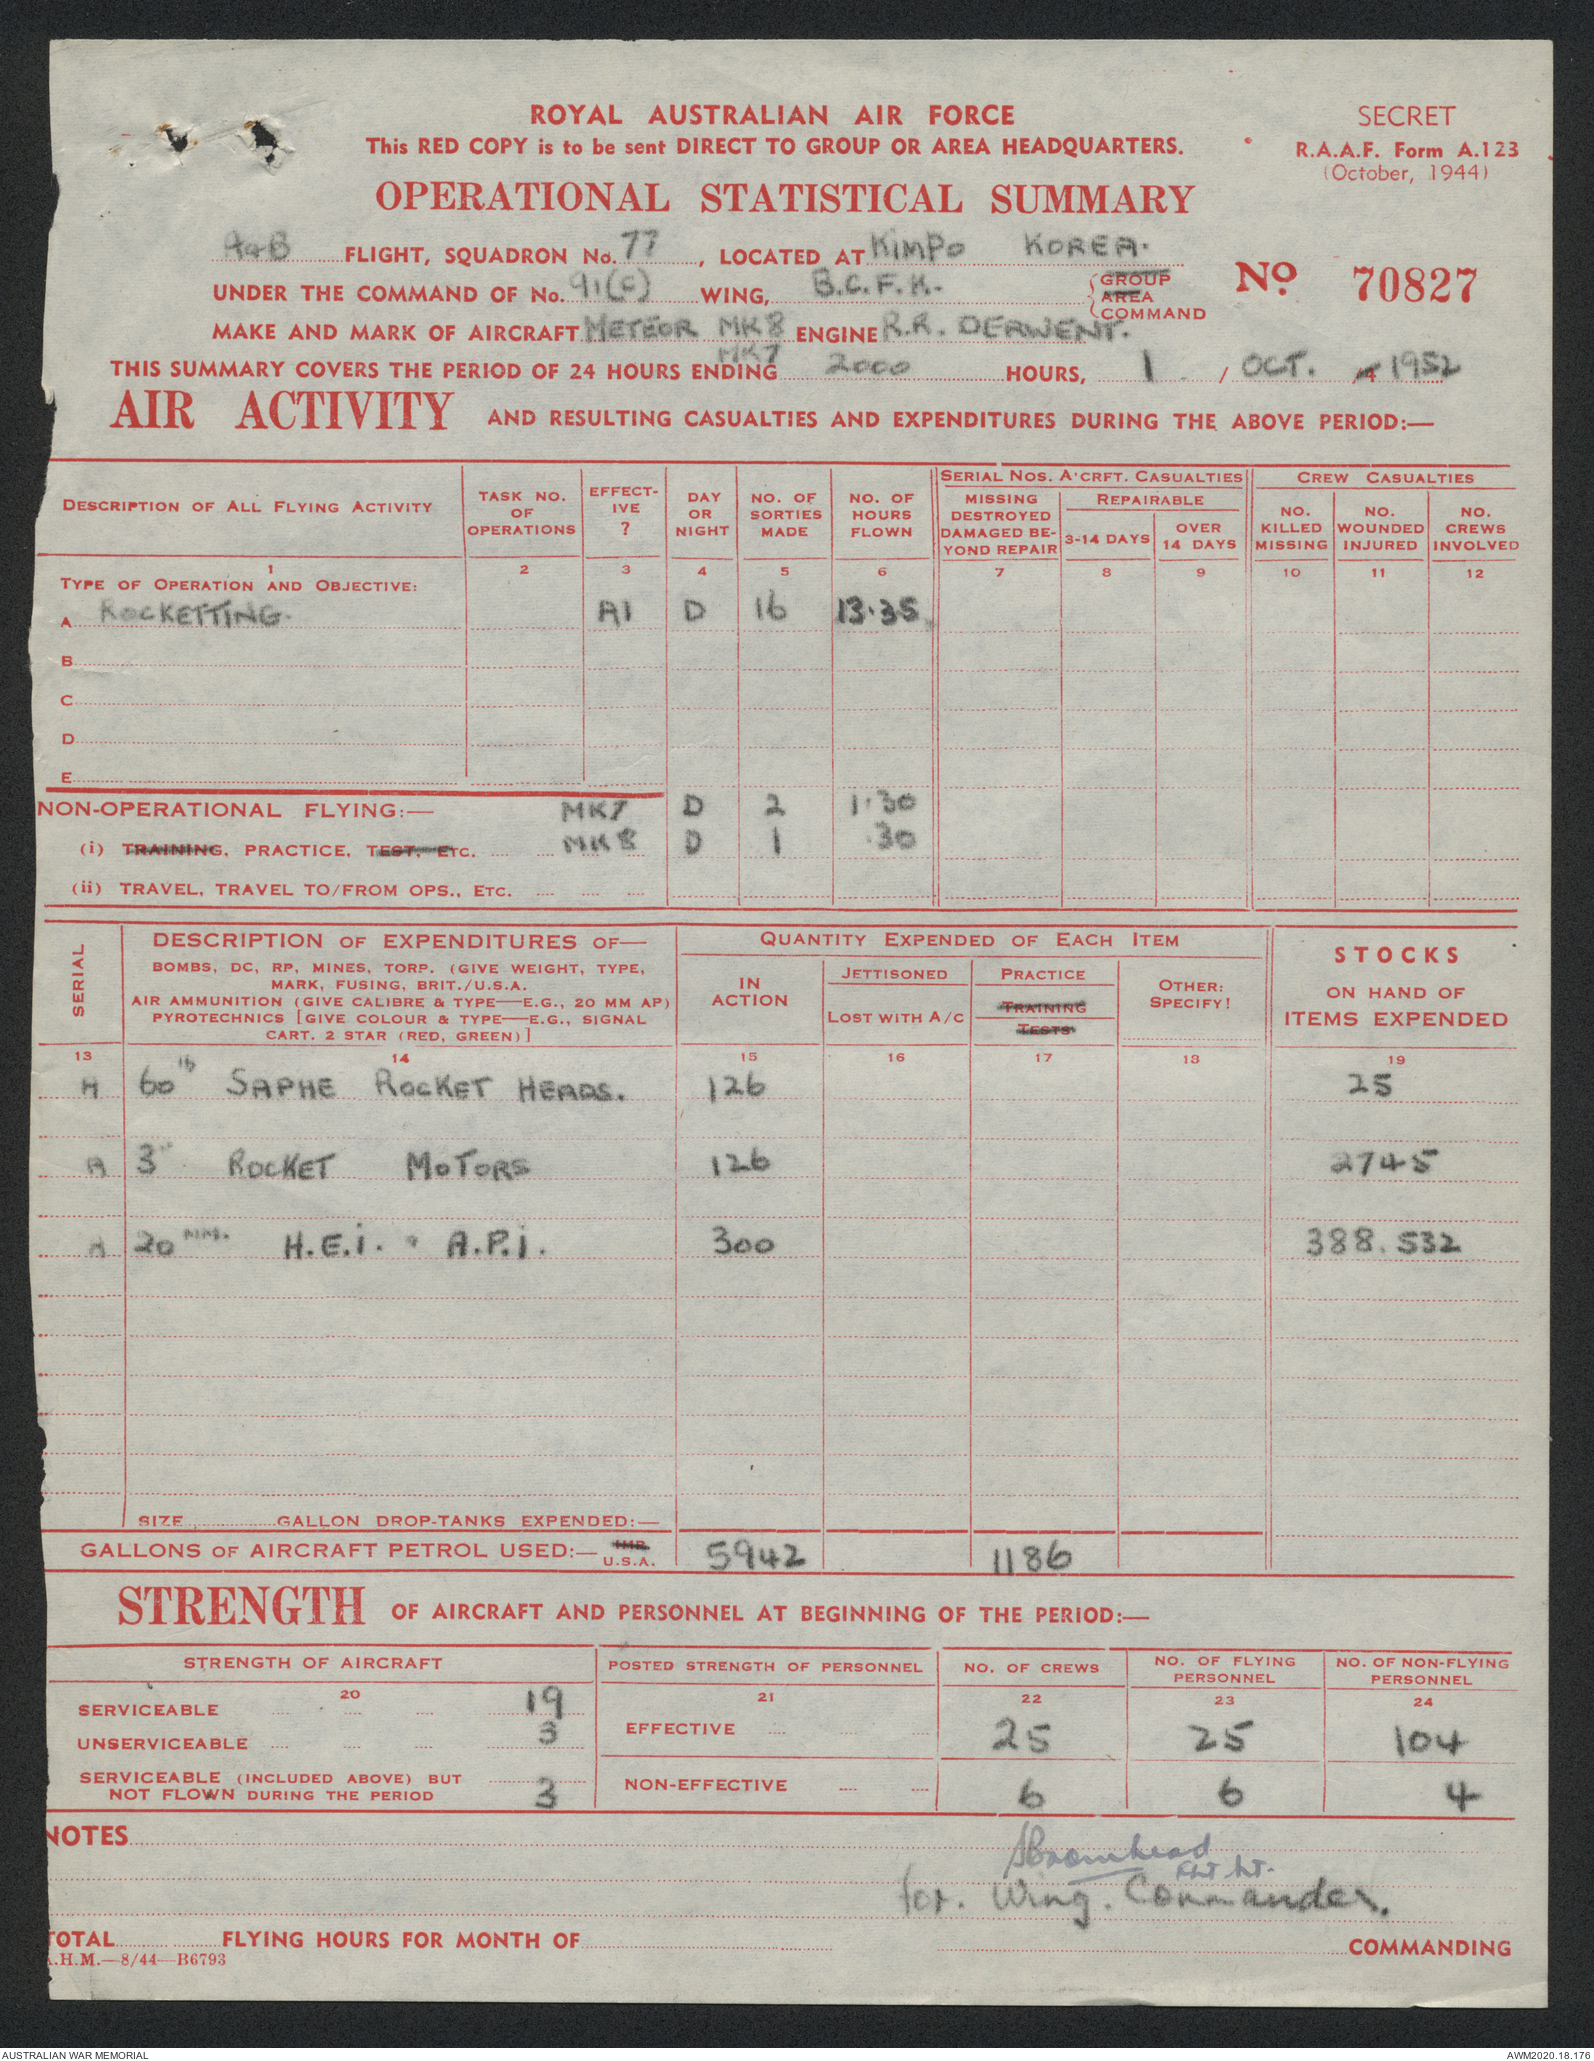 ROYAL AUSTRALIAN AIR FORCE
SECRET
This RED COPY is to be sent DIRECT TO GROUP OR AREA HEADQUARTERS.
R.A.A.F. Form A.123
(October, 1944)
OPERATIONAL STATISTICAL SUMMARY
A&B FLIGHT, SQUADRON No. 77, LOCATED AT KIMPO KOREA.
UNDER THE COMMAND OF No. 91(C) WING, B.C.F.K. GROUP AREA COMMAND
No. 70827
MAKE AND MARK OF AIRCRAFT METEOR MK8 ENGINE R.R. DERWENT.
MK7
THIS SUMMARY COVERS THE PERIOD OF 24 HOURS ENDING 2000 HOURS, 1 / OCT. /4 1952
AIR ACTIVITY AND RESULTING CASUALTIES AND EXPENDITURES DURING THE ABOVE PERIOD:—
DESCRIPTION OF ALL FLYING ACTIVITY
TASK NO. OF OPERATIONS
EFFECT-IVE ?
DAY OR NIGHT
NO. OF SORTIES MADE
NO. OF HOURS FLOWN
SERIAL NOS. A'CRFT. CASUALTIES
MISSING DESTROYED DAMAGED BE-YOND REPAIR
REPAIRABLE
3-14 DAYS
OVER 14 DAYS
CREW CASUALTIES
NO. KILLED MISSING
NO. WOUNDED INJURED
NO. CREWS INVOLVED
1 2 3 4 5 6 7 8 9 10 11 12
TYPE OF OPERATION AND OBJECTIVE:
A ROCKETTING. A1 D 16 13.35
B
C
D
E
NON-OPERATIONAL FLYING:— MK7 D 2 1.30
(i) TRAINING, PRACTICE, TEST, ETC. MK8 D 1 .30
(ii) TRAVEL, TRAVEL TO/FROM OPS., ETC.
SERIAL
DESCRIPTION OF EXPENDITURES OF—
BOMBS, DC, RP, MINES, TORP. (GIVE WEIGHT, TYPE,
MARK, FUSING, BRIT./U.S.A.
AIR AMMUNITION (GIVE CALIBRE & TYPE—E.G., 20 MM AP)
PYROTECHNICS [GIVE COLOUR & TYPE—E.G., SIGNAL
CART. 2 STAR (RED, GREEN)]
QUANTITY EXPENDED OF EACH ITEM
IN ACTION
JETTISONED
LOST WITH A/C
PRACTICE
TRAINING
TESTS
OTHER: SPECIFY!
STOCKS
ON HAND OF
ITEMS EXPENDED
13 14 15 16 17 18 19
A 60 lb SAPHE ROCKET HEADS. 126 25
A 3" ROCKET MOTORS 126 2745
A 20 MM. H.E.I. & A.P.I. 300 388.532
SIZE GALLON DROP-TANKS EXPENDED:—
GALLONS OF AIRCRAFT PETROL USED:— IMP. U.S.A. 5942 1186
STRENGTH OF AIRCRAFT AND PERSONNEL AT BEGINNING OF THE PERIOD:—
STRENGTH OF AIRCRAFT
POSTED STRENGTH OF PERSONNEL
NO. OF CREWS
NO. OF FLYING PERSONNEL
NO. OF NON-FLYING PERSONNEL
20 21 22 23 24
SERVICEABLE 19
UNSERVICEABLE 3
SERVICEABLE (INCLUDED ABOVE) BUT
NOT FLOWN DURING THE PERIOD 3
EFFECTIVE 25 25 104
NON-EFFECTIVE 6 6 4
NOTES
Bromhead
Flt Lt.
for. Wing. Commander.
TOTAL FLYING HOURS FOR MONTH OF COMMANDING
.H.M.—8/44—B6793
AUSTRALIAN WAR MEMORIAL
AWM2020.18.176